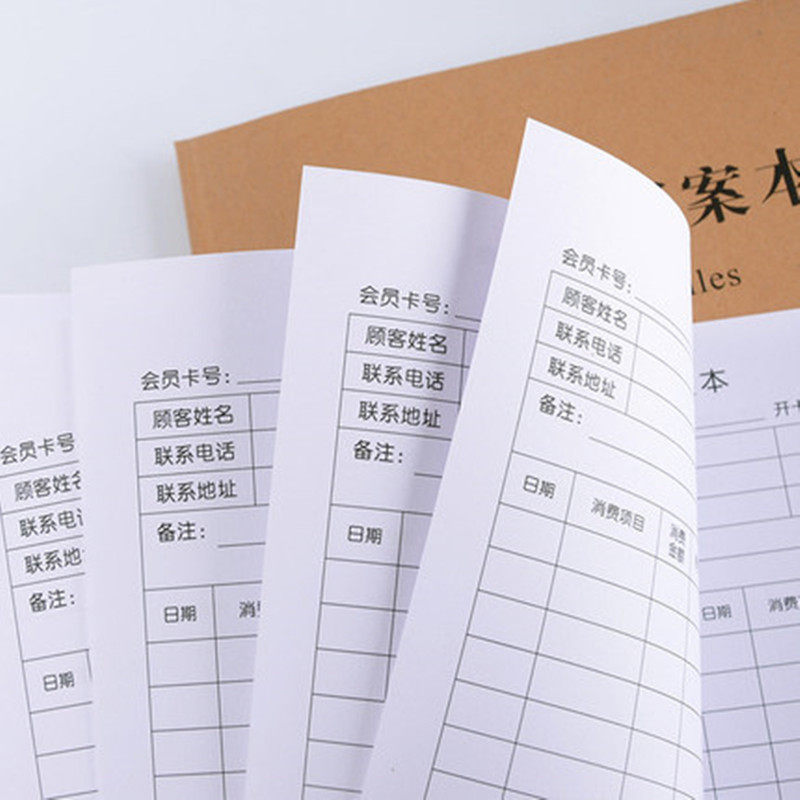 案本
les
本
开卡
日期 消费
会员卡号:
顾客姓名
联系电话
联系地址
备注:
日期 消费项目 消费金额
会员卡号:
顾客姓名
联系电话
联系地址
备注:
日期
会员卡号:
顾客姓名
联系电话
联系地址
备注:
日期 消
会员卡号
顾客姓名
联系电话
联系地
备注:
日期